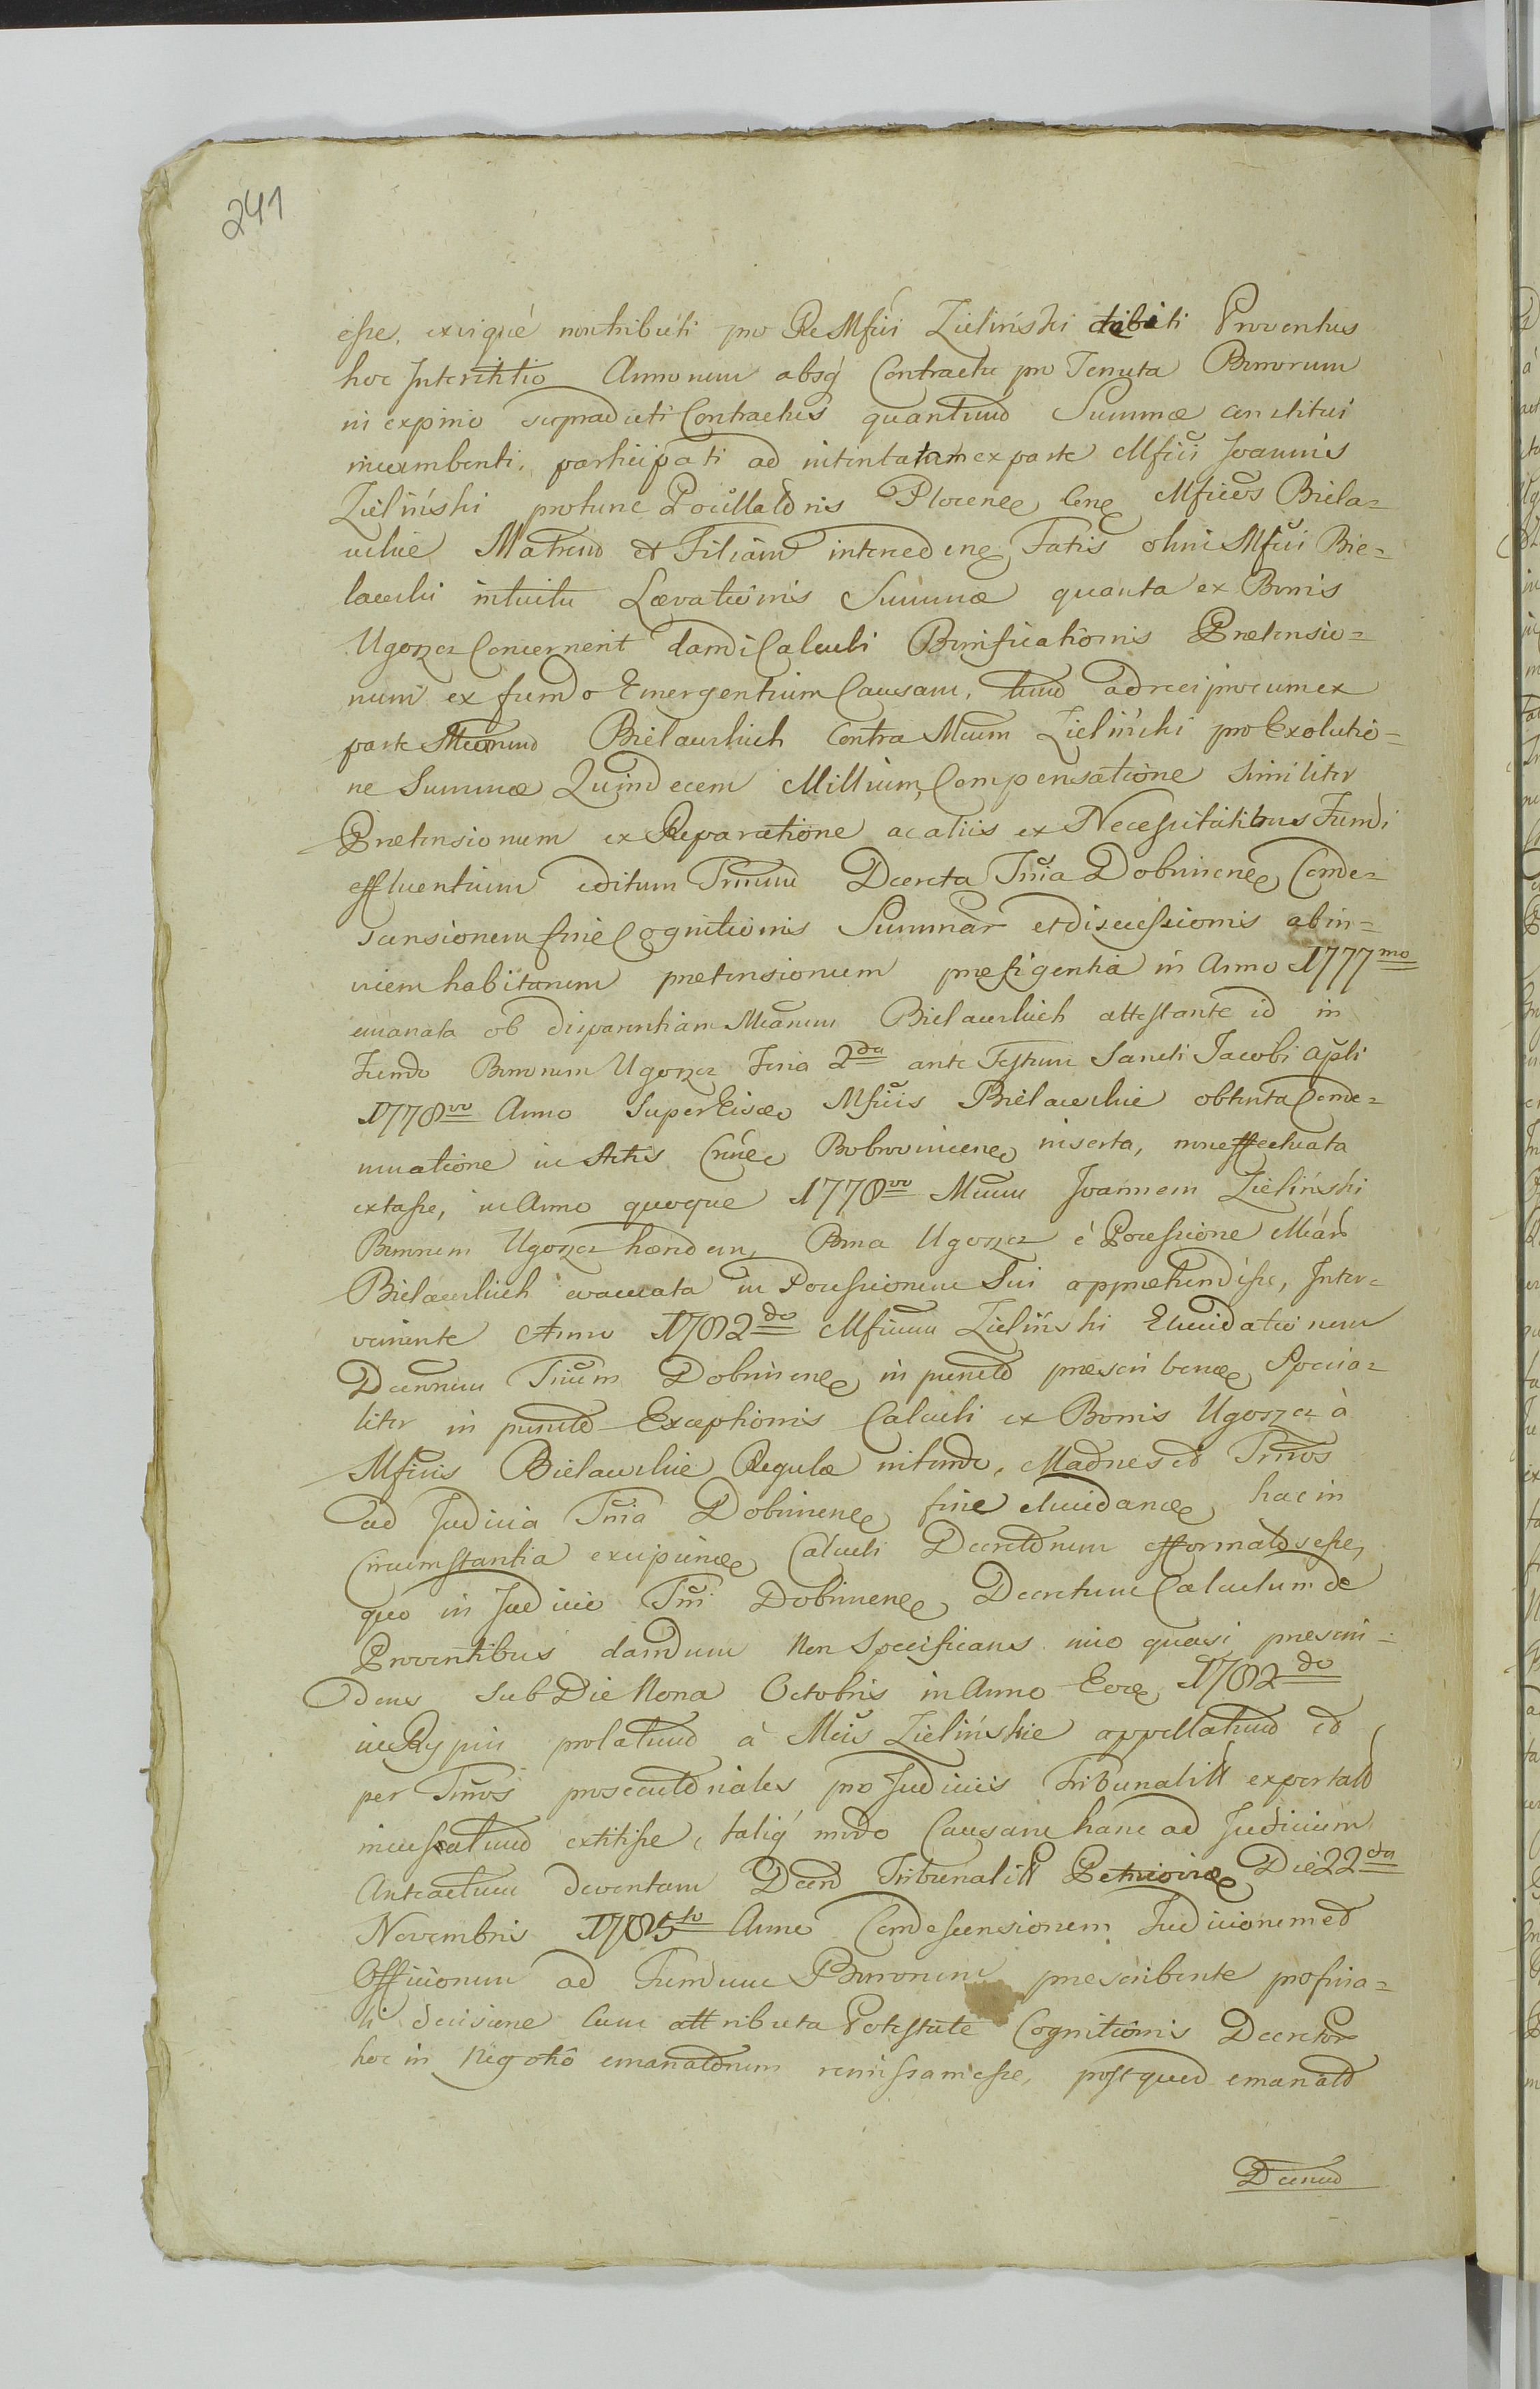 241
esse, exinque non tributi pro Re Mfici Zieliński debiti Proventus
hoc Interstitio Annorum absq Contractu pro Tenuta Bonorum
in expirio supradicti Contractus quantum Summæ constitui
incumbenti, participati ad intentatam ex parte Mfici Joannis
Zieliński protunc Pocillatoris Plocen cn̄e Mficos Biela=
wskie Matrem et Filiam interceden Fatis olim Mfici Bie=
lawski intuitu Lævationis Summæ quanta ex Bonis
Ugoszcz Concernerit dandi Calculi Bonificationis Prætensio=
num ex fundo Emergentium Causam, tum ad reciprocum ex
parte Mcarum Bielawskich Contra Mcum Zieliński pro Exolutio=
ne Summæ Quindecem Millium, Compensatione similiter
Prætensionum ex Reparatione ac aliis ex Necessitatibus Fundi
effluentium editum Trnum Decreta Trria Dobrinen Conde=
scensionem fine Cognitionis Summar et discussionis ab in=
vicem habitarum prætensionum præfigentia in Anno 1777mo
emanata ob disparentiam Mcarum Bielawskich attestante id in
Fundo Bonorum Ugoszcz Feria 2da ante Festum Sancti Jacobi Apli
1778vo Anno Super Eisdo Mficis Bielawskie obtenta Conde=
mnatione in Actis Crrie Bobrovnicen inserta, non effectuata
extasse, in Anno quoque 1778vo Mcum Joannem Zieliński
Bonorum Ugoszcz hæredem, Bona Ugoszcz è Possessione Mcar
Bielawskich evacuata in Possessionem Sui apprehendisse, Inter=
veniente Anno 1782do Mficum Zieliński Elucidationem
Decrorum Trrium Dobrinen in puncto præscriben Specia=
liter in puncto Exceptionis Calculi ex Bonis Ugoszcz à
Mficis Bielawskie Regulæ nitendo, Madnes et Trnos
ad Judicia Trria Dobrinen fine elucidan hac in
Circumstantia excipien Calculi Decretorum efformatos esse,
quo in Judicio Trri Dobrinen Decretum Calculum de
Proventibus dandum Non Specificans imo quasi præscin=
dens sub Die Nona Octobris in Anno Eod 1782do
in Rypin prolatum à Mcis Zielińskie appellatum et
per Trnos prosecutoriales pro Judiciis Tribunalitt exportato
incussatum extitisse, taliq modo Causam hanc ad Judicium
Anteactum deventam Decro Tribunalitt Petricovien Die 22da
Novembris 1785to Anno Condescensionem Judiciorum et
Officiorum ad Fundum Bonorum præscribente pro fina=
li decisione cum attributa Potestate Cognitionis Decretor
hoc in Negotio emanatorum remissam esse, post quod emanato
Decreto